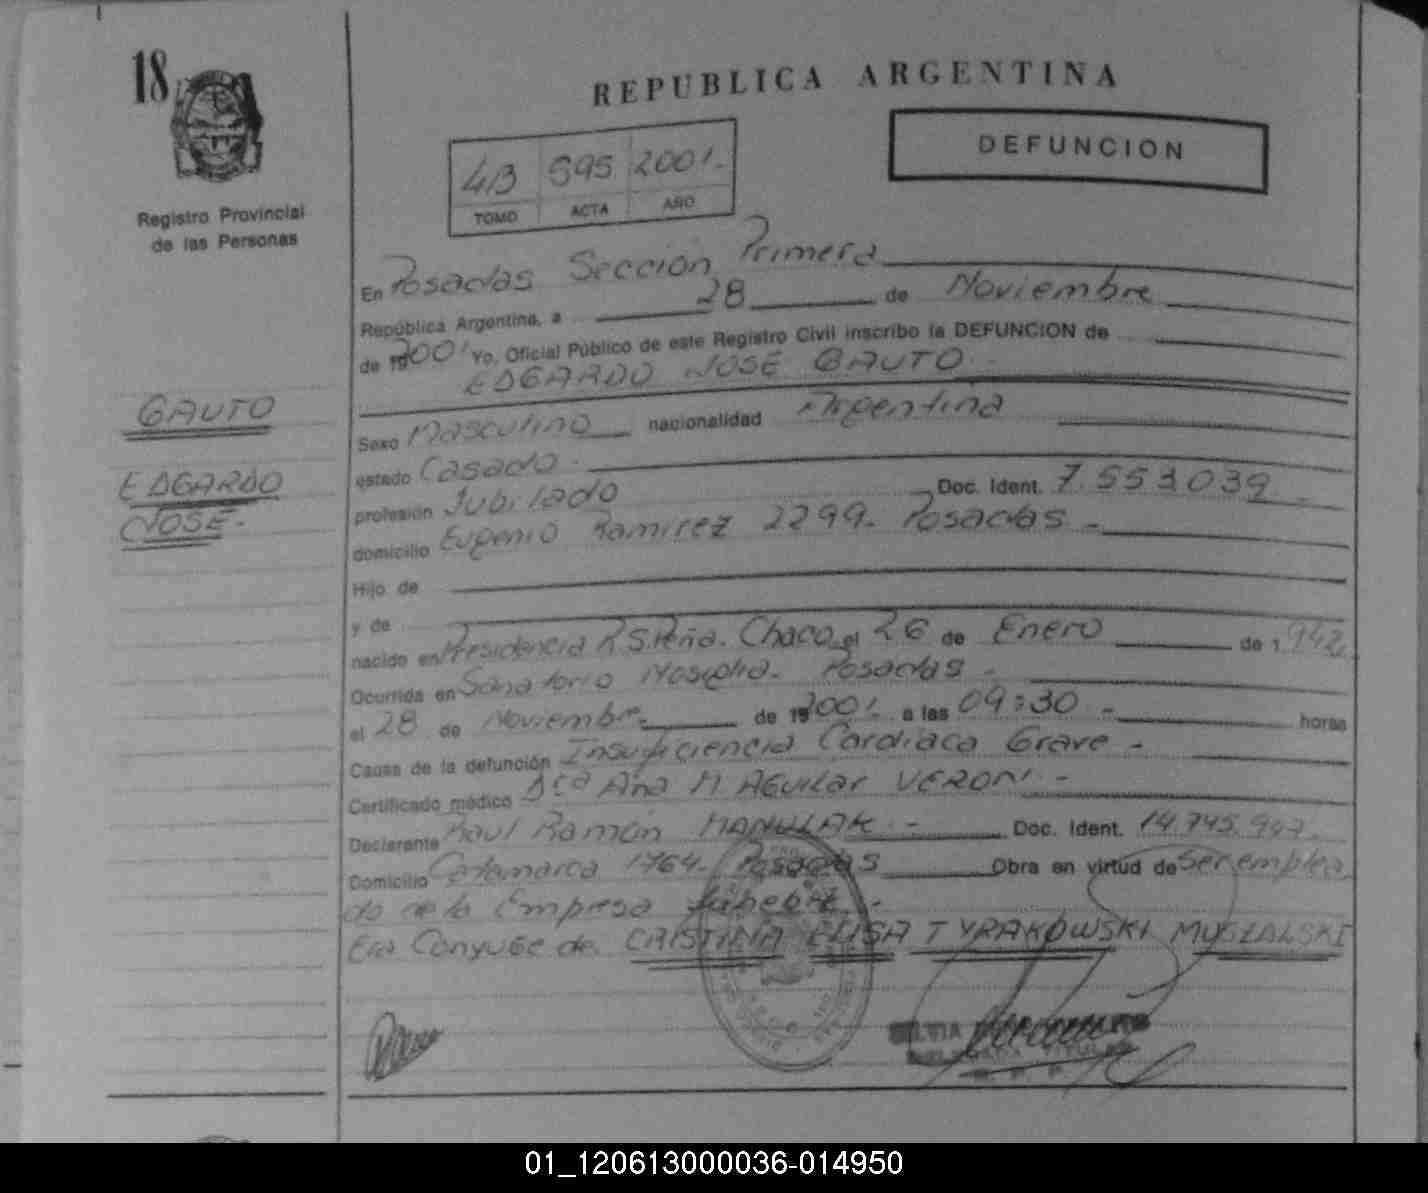 18
REPUBLICA ARGENTINA
DEFUNCION
4B 595 2001.-
TOMO ACTA AÑO
Registro Provincial
de las Personas
En Posadas Sección Primera
República Argentina, a 28 de Noviembre
de 19 2001 Yo, Oficial Público de este Registro Civil inscribo la DEFUNCION de
EDGARDO JOSE GAUTO.-
GAUTO
EDGARDO
JOSE.-
Sexo Masculino nacionalidad Argentina
estado Casado.-
profesión Jubilado Doc. Ident. 7.553.039.-
domicilio Eugenio Ramirez 2299.- Posadas.-
Hijo de
y de
nacido en Presidencia R.S.Peña. Chaco. el 26 de Enero de 1.942
Ocurrida en Sanatorio Posadas.-
el 28 de Noviembre.- de 19 2001. a las 09:30.- horas
Causa de la defunción Insuficiencia Cardiaca Grave.-
Certificado médico Dra Ana M. AGUILAR VERON.-
Declarante Raul Ramón MANULAK.- Doc. Ident. 14.745.
Domicilio Catamarca 1764. Posadas Obra en virtud de Ser emplea
do de la Empresa fúnebre.-
Era Conyuge de CRISTINA ELISA TYRAKOWSKI MUSIALSKI
SILVIA
01_120613000036-014950